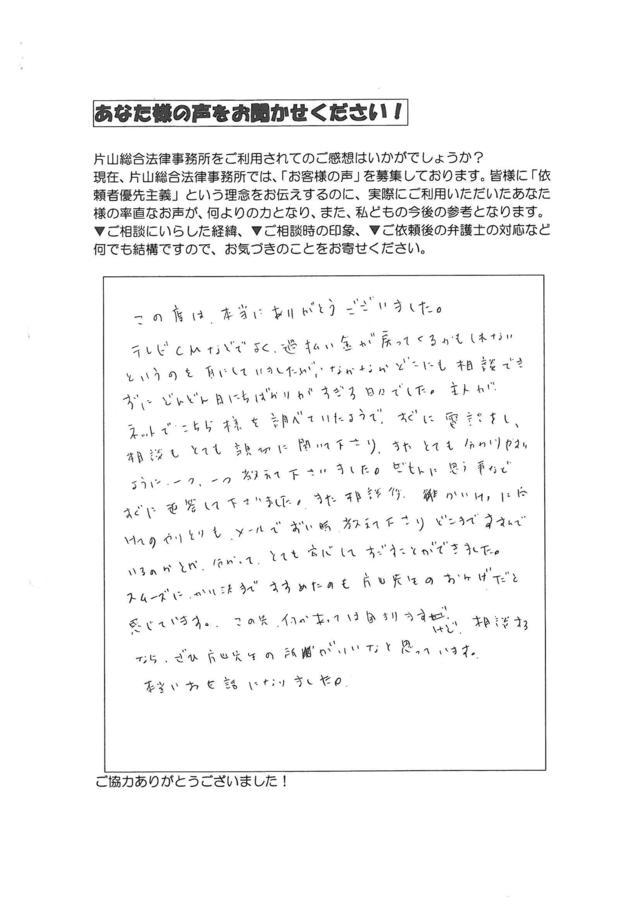 あなた様の声をお聞かせください！
片山総合法律事務所をご利用されてのご感想はいかがでしょうか？
現在、片山総合法律事務所では、「お客様の声」を募集しております。皆様に「依
頼者優先主義」という理念をお伝えするのに、実際にご利用いただいたあなた
様の率直なお声が、何よりの力となり、また、私どもの今後の参考となります。
▼ご相談にいらした経緯、▼ご相談時の印象、▼ご依頼後の弁護士の対応など
何でも結構ですので、お気づきのことをお寄せください。
この度は、本当にありがとうございました。
テレビCMなどでよく、過払い金が戻ってくるかもしれない
というのを耳にしていましたが、なかなかどこにも相談でき
ずにどんどん日にちばかりがすぎる日々でした。主人が
ネットでこちら様を調べていたようで、すぐに電話をし、
相談もとても親切に聞いて下さり、またとても分かりやすい
ように、一つ、一つ教えて下さいました。ぎもんに思う事など
すぐに返答して下さいました。また相談後、
けてのやりとりも、メールで教えて下さり どこまですすんで
いるのかとか、分かって、とても安心してすごすことができました。
スムーズに、かい決まですすめたのも片山先生のおかげだと
感じています。この先、何かあっては困りますけど、相談する
なら、ぜひ片山先生の所がいいなと思っています。
本当にお世話になりました。
ご協力ありがとうございました！